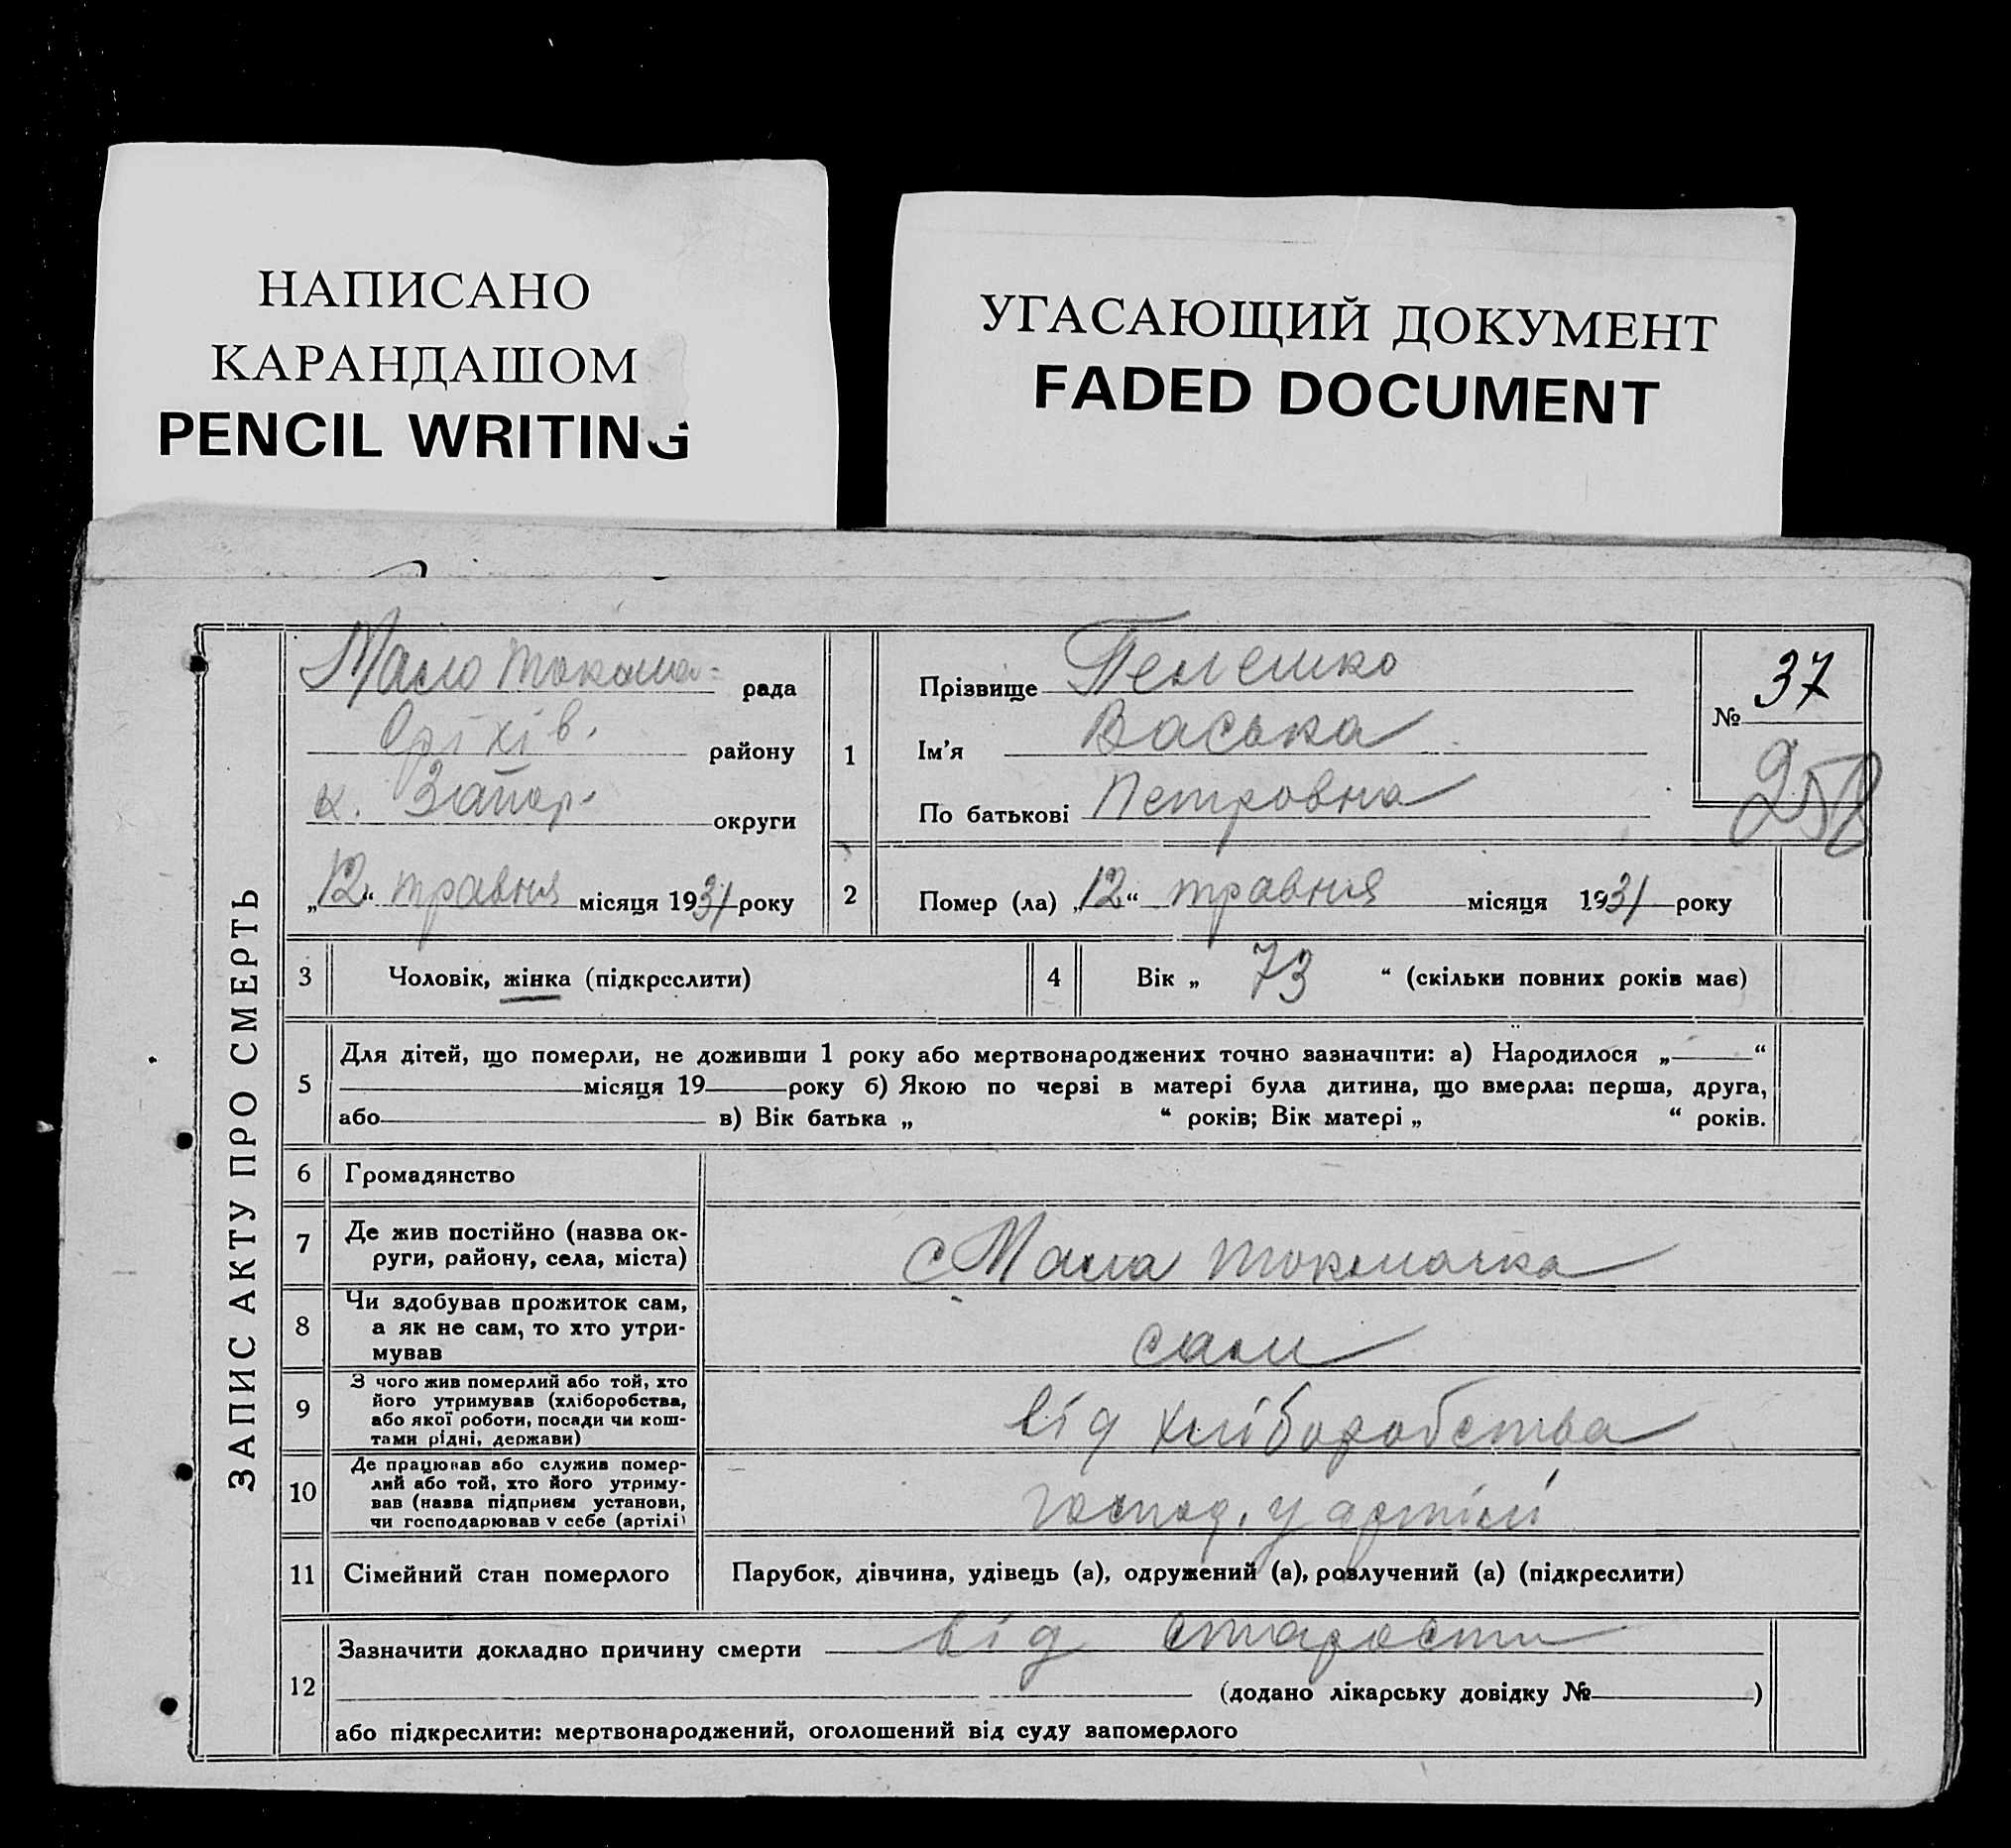 НАПИСАНО
КАРАНДАШОМ
PENCIL WRITING
УГАСАЮЩИЙ ДОКУМЕНТ
FADED DOCUMENT
ЗАПИС АКТУ ПРО СМЕРТЬ
Мало рада
Оріхів. району
Запор. округи
„12“ травня місяця 1931 року
1
Прізвище
Ім'я Васька
По батькові Петровна
№ 37
2
Помер (ла) „12“ травня місяця 1931 року
3 Чоловік, жінка (підкреслити)
4 Вік „ 73 “ (скільки повних років має)
5
Для дітей, що померли, не доживши 1 року або мертвонароджених точно зазначити: а) Народилося „ “
місяця 19 року б) Якою по черзі в матері була дитина, що вмерла: перша, друга,
або в) Вік батька „ “ років; Вік матері „ “ років.
6 Громадянство
7 Де жив постійно (назва ок-
руги, району, села, міста)
с Мала Токмачка
8 Чи здобував прожиток сам,
а як не сам, то хто утри-
мував
сам
9 З чого жив померлий або той, хто
його утримував (хліборобства,
або якої роботи, посади чи кош-
тами рідні, держави)
від хліборобства
10 Де працював або служив помер-
лий або той, хто його утриму-
вав (назва підприєм установи,
чи господарював у себе (артілі)
господ. у артілі
11 Сімейний стан померлого
Парубок, дівчина, удівець (а), одружений (а), розлучений (а) (підкреслити)
12
Зазначити докладно причину смерти від старости
(додано лікарську довідку № )
або підкреслити: мертвонароджений, оголошений від суду запомерлого